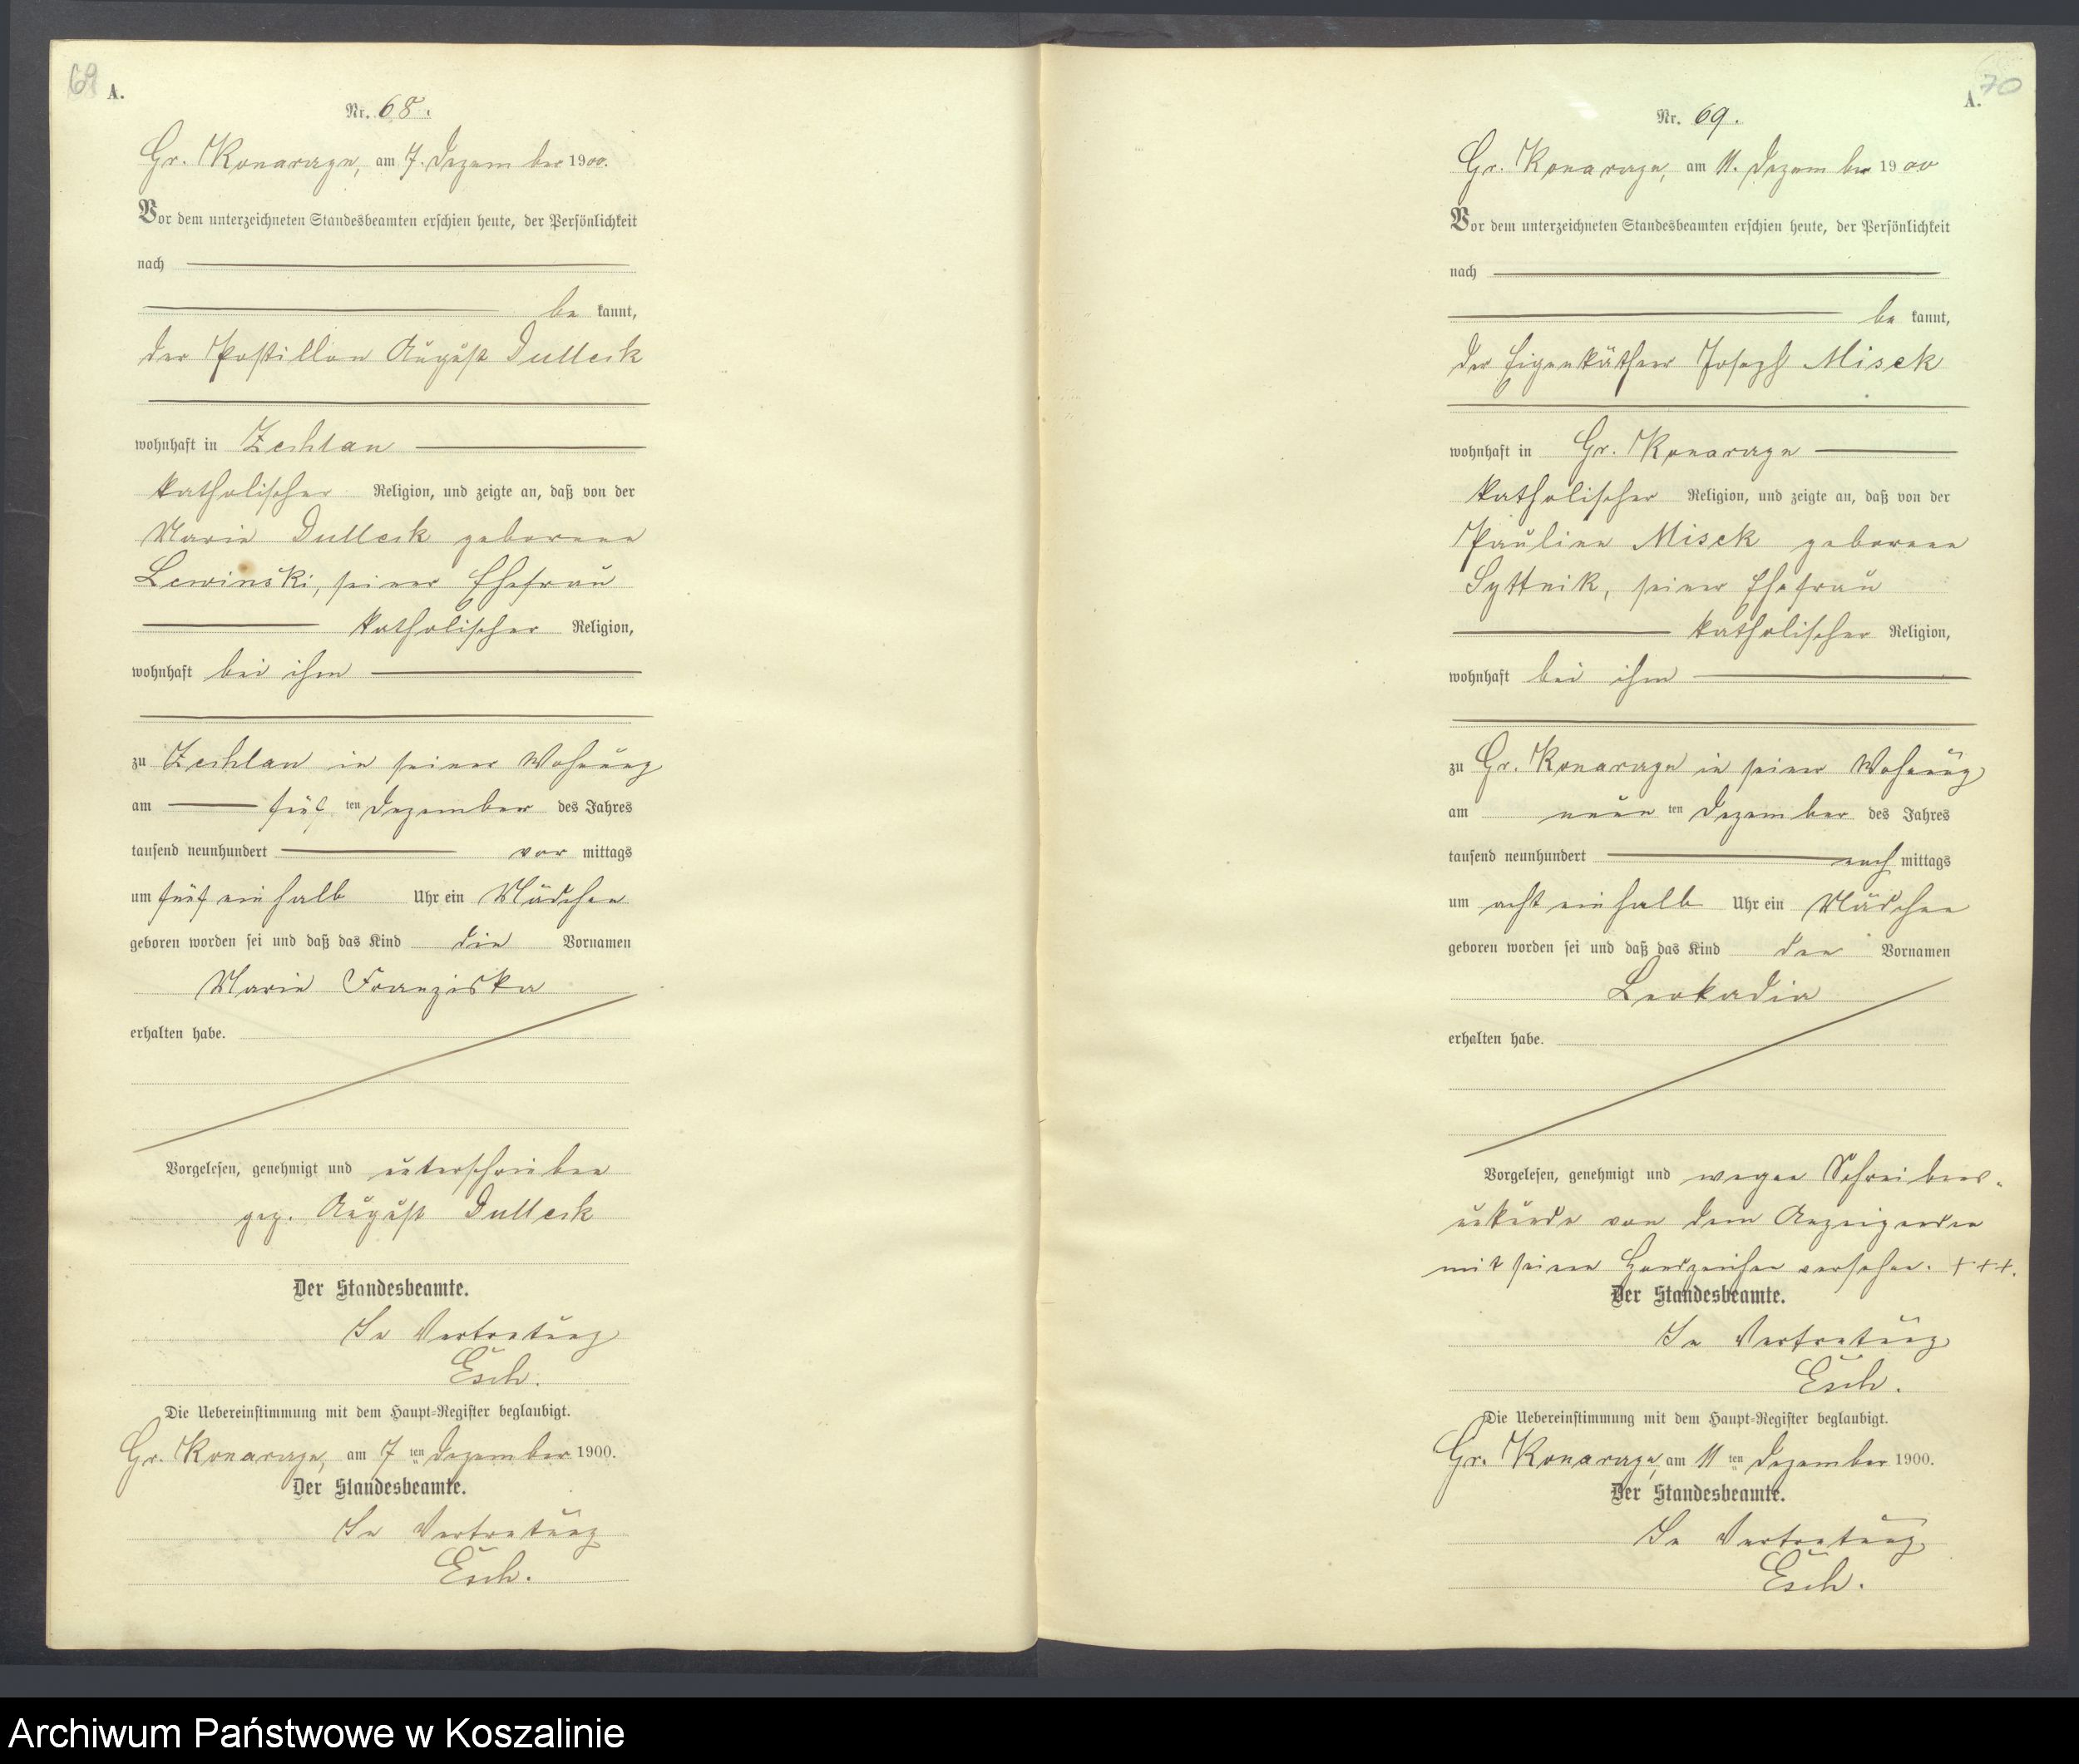 69
A.
Nr. 68.
Gr. Konarczyn, am 7. Dezember 1900.
Vor dem unterzeichneten Standesbeamten erschien heute, der Persönlichkeit
nach
be kannt,
der Postillon August Dulleck
wohnhaft in Zechlau
katholischer Religion, und zeigte an, daß von der
Marie Dulleck geborene
Lewinski, seiner Ehefrau
katholischer Religion,
wohnhaft bei ihm
zu Zechlau in seiner Wohnung
am fünf ten Dezember des Jahres
tausend neunhundert vor mittags
um fünf ein halb Uhr ein Mädchen
geboren worden sei und daß das Kind die Vornamen
Marie Franziska
erhalten habe.
Vorgelesen, genehmigt und unterschrieben
gez. August Dulleck
Der Standesbeamte.
In Vertretung
Esch.
Die Uebereinstimmung mit dem Haupt-Register beglaubigt.
Gr. Konarczyn, am 7 ten Dezember 1900.
Der Standesbeamte.
In Vertretung
Esch.
70
A.
Nr. 69.
Gr. Konarczyn, am 11. Dezember 1900
Vor dem unterzeichneten Standesbeamten erschien heute, der Persönlichkeit
nach
be kannt,
der Eigenkäthner Joseph Misek
wohnhaft in Gr. Konarczyn
katholischer Religion, und zeigte an, daß von der
Pauline Misek geborene
Syttnik, seiner Ehefrau
katholischer Religion,
wohnhaft bei ihm
zu Gr. Konarczyn in seiner Wohnung
am neun ten Dezember des Jahres
tausend neunhundert nach mittags
um acht ein halb Uhr ein Mädchen
geboren worden sei und daß das Kind den Vornamen
Leokadia
erhalten habe.
Vorgelesen, genehmigt und wegen Schreibens-
unkunde von dem Anzeigenden
mit seinem Handzeichen versehen. +++.
Der Standesbeamte.
In Vertretung
Esch.
Die Uebereinstimmung mit dem Haupt-Register beglaubigt.
Gr. Konarczyn, am 11 ten Dezember 1900.
Der Standesbeamte.
In Vertretung
Esch.
Archiwum Państwowe w Koszalinie